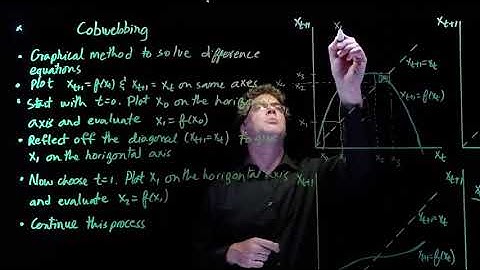 Cobwebbing
• Graphical method to solve difference
equations
• Plot x_{t+1}=f(x_t) & x_{t+1}=x_t on same axes
• Start with t=0. Plot x_0 on the horizon
axis and evaluate x_1=f(x_0)
• Reflect off the diagonal (x_{t+1}=x_t) to
x_1 on the horizontal axis
• Now choose t=1. Plot x_1 on the horizontal axis
and evaluate x_2=f(x_1)
• Continue this process
x_{t+1}
x_3
x_2
x_1
x_{t+1}=x_t
x_{t+1}=f(x_t)
x_0 x_1 x_2 x_3 x_t
x_{t+1}
x_{t+1}
x_{t+1}=x_t
x_{t+1}=f(x_t)
x_{t+1}